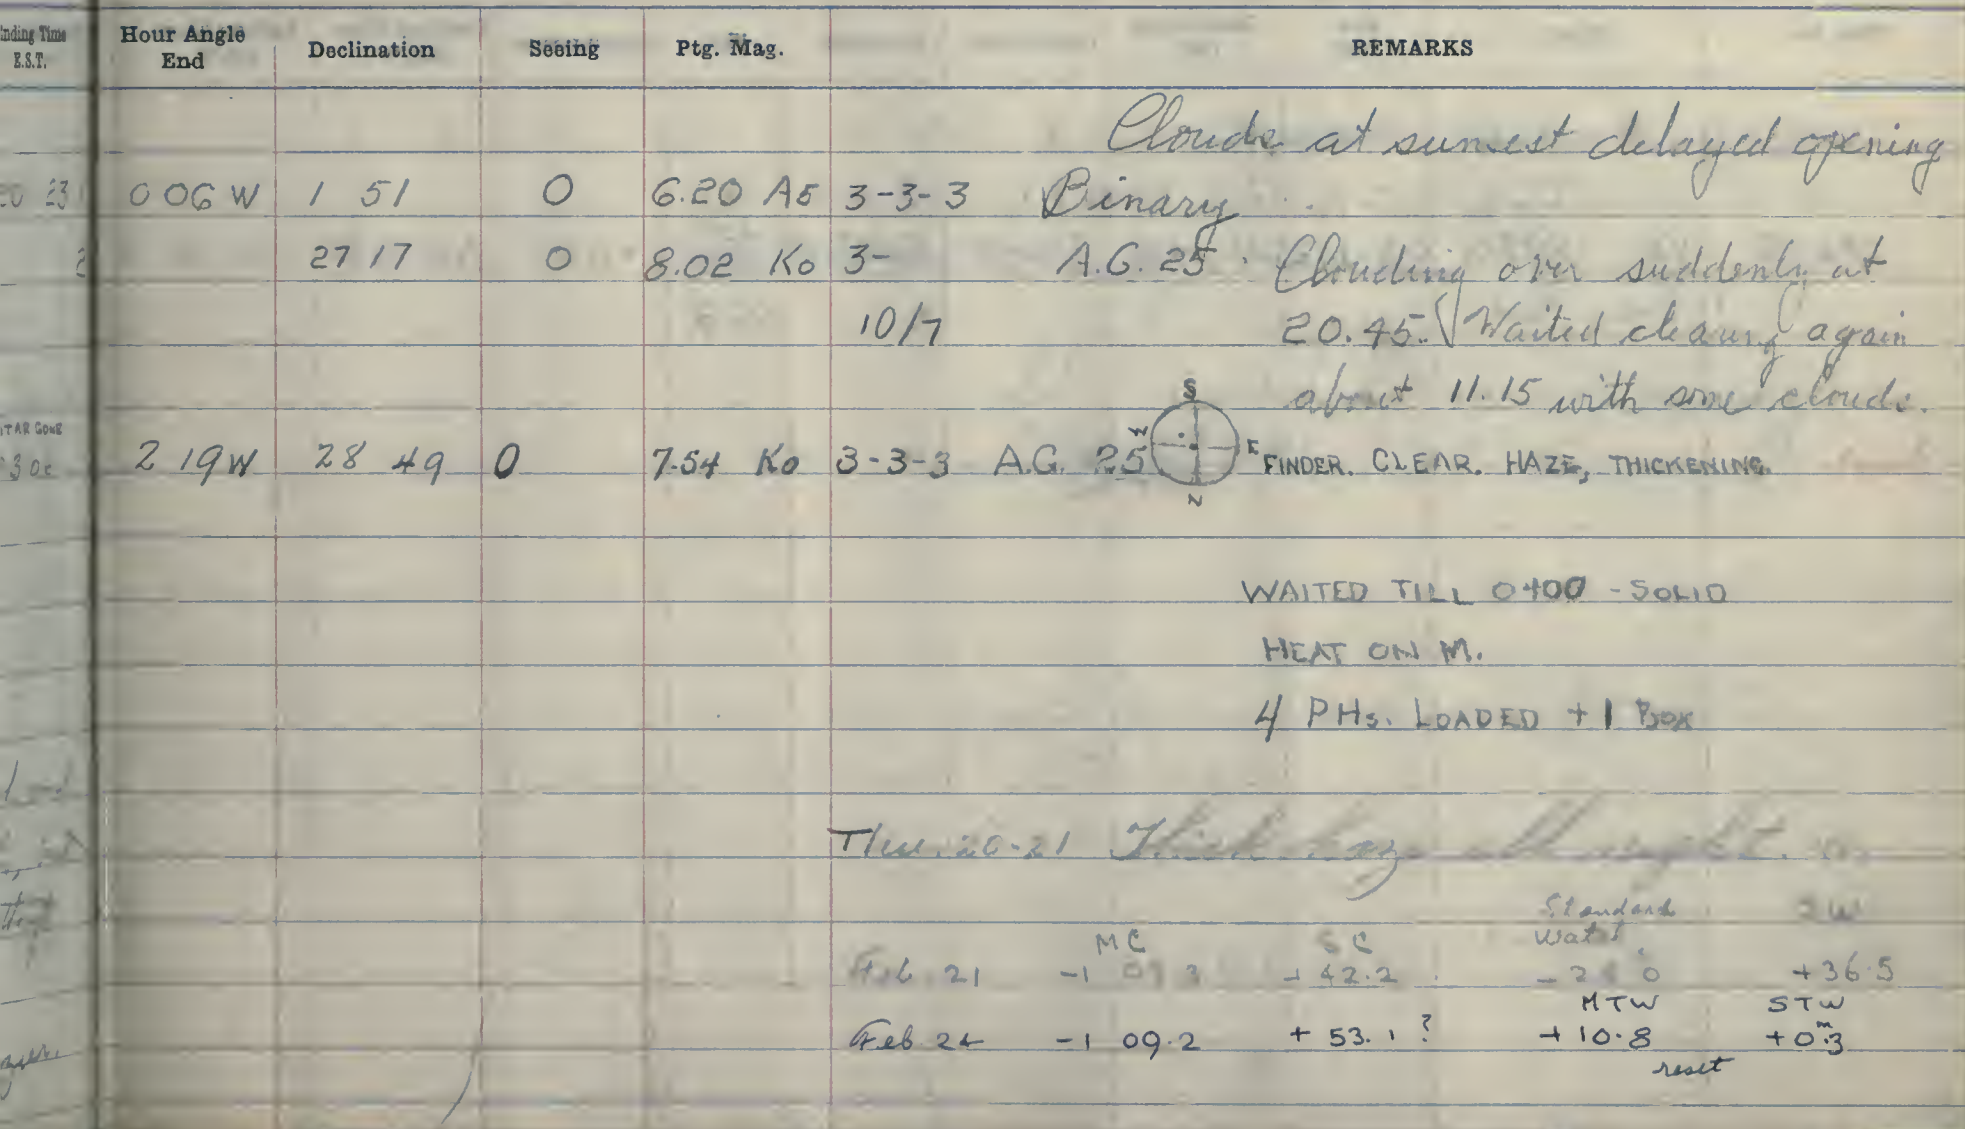 Ending Time Hour Angle Declination Seeing Ptg. Mag. REMARKS
E.S.T. End
Clouds at sunset delayed opening
20 23 0 06 W 1 51 0 6.20 A5 3-3-3 Binary
27 17 0 8.02 Ko 3- A.G. 25 Clouding over suddenly at
10/7 20.45. Waited clearing again
about 11.15 with some clouds.
S
STAR GONE W E
2 19 W 28 49 0 7.54 Ko 3-3-3 A.G. 25 FINDER. CLEAR. HAZE, THICKENING.
N
WAITED TILL 0400 - SOLID
HEAT ON M.
4 PHs. LOADED + 1 BOX
20-21 Thick haze all night.
Standard
MC SC Wat
Feb 21 -1 + 42.2 +36.5
MTW STW
Feb 24 -1 09.2 + 53.1 ? + 10.8 +0.3 m
reset